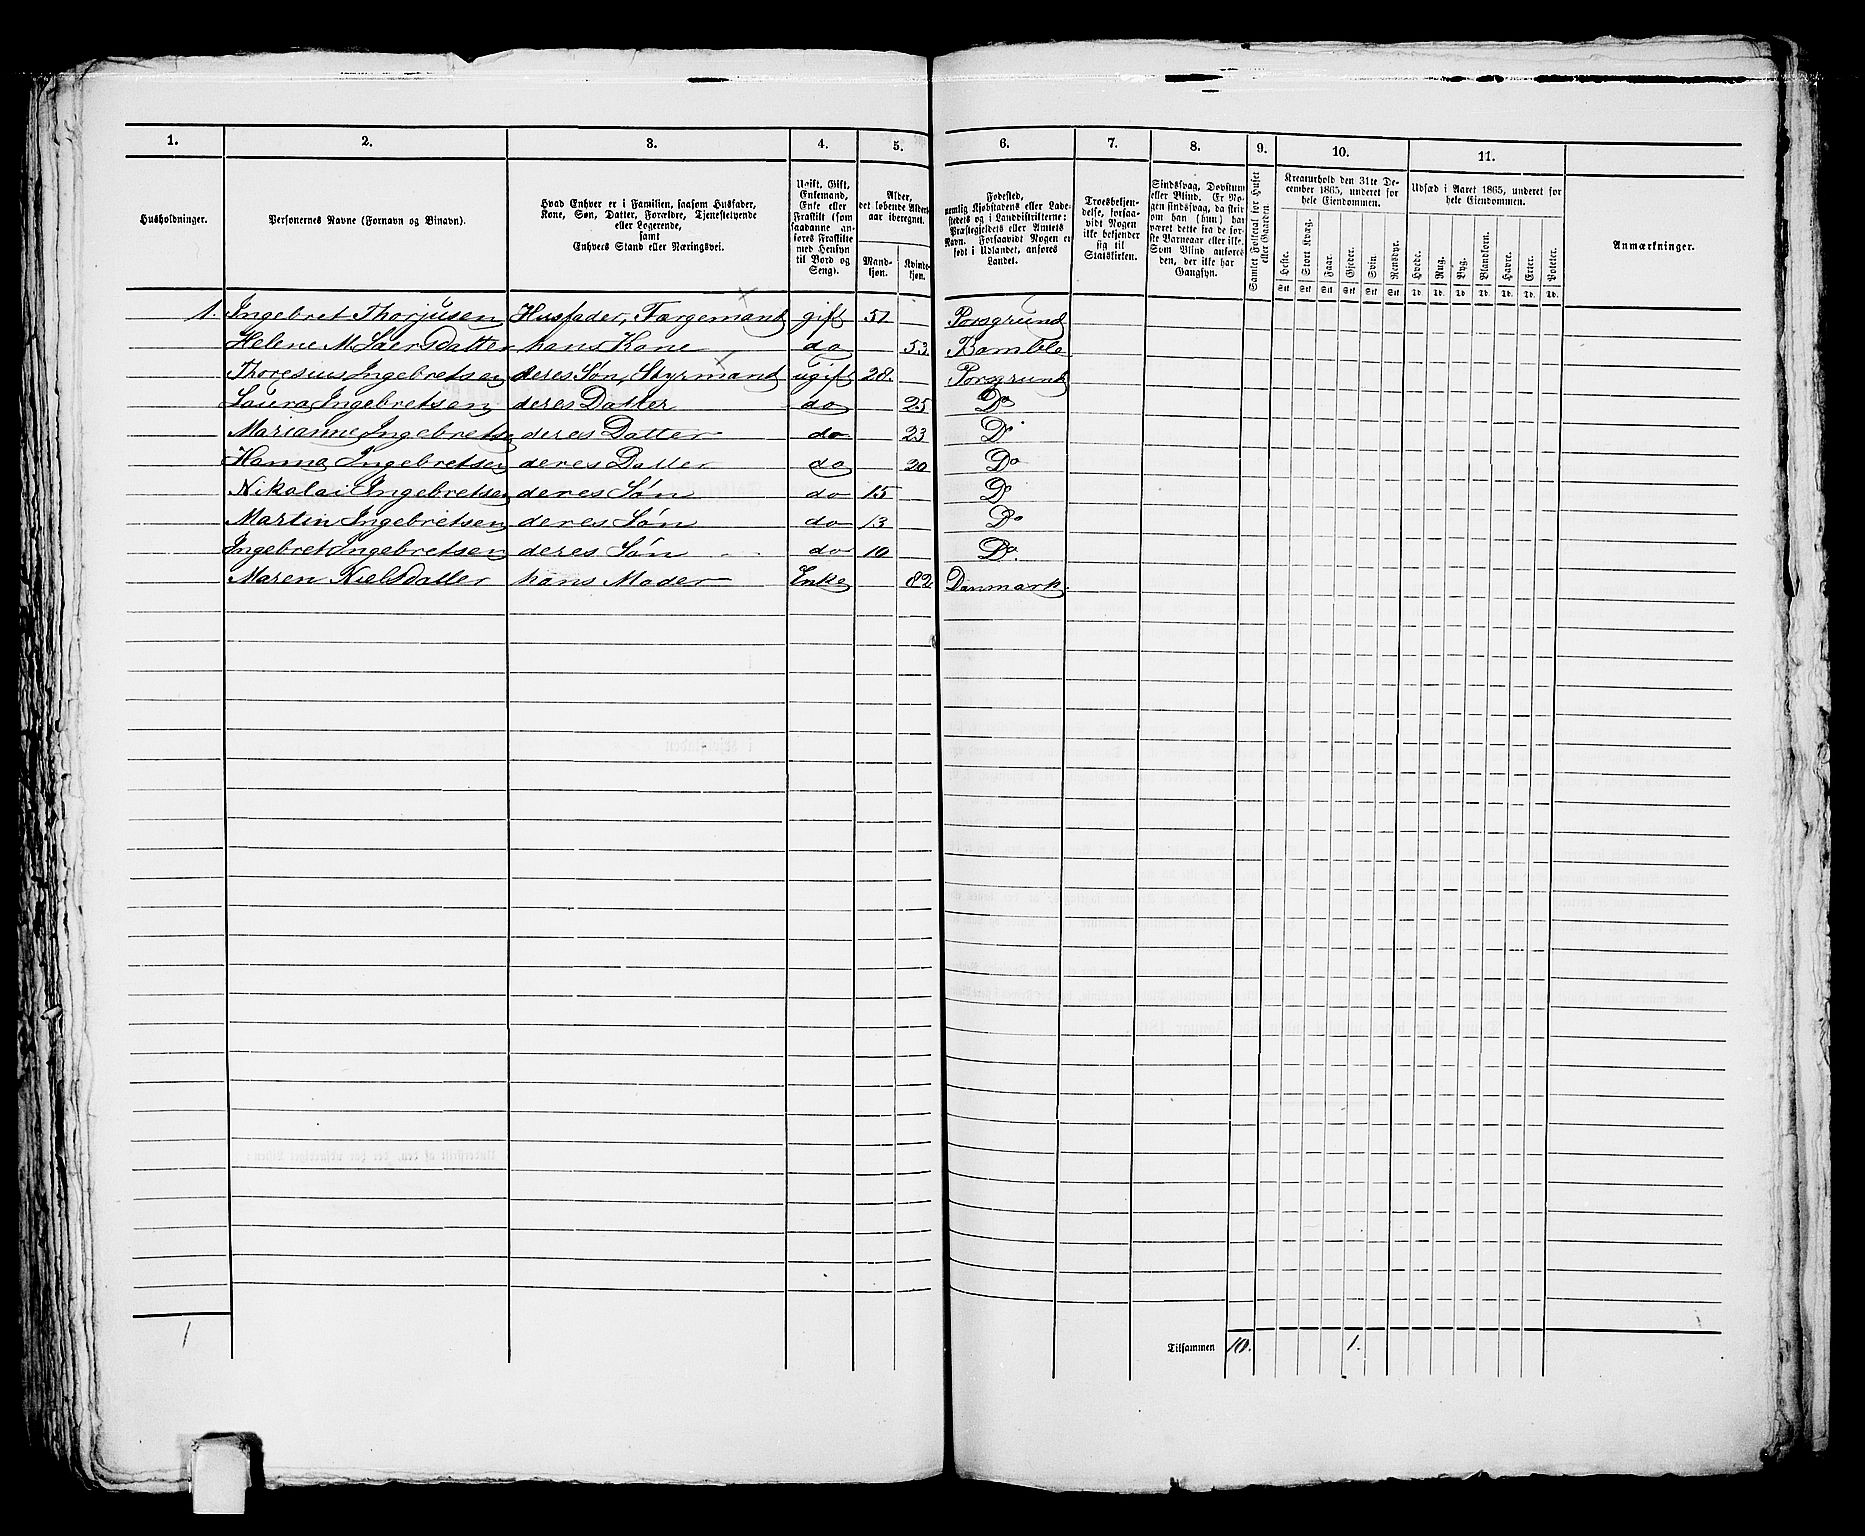 1. 2. 3. 4. 5. 6. 7. 8. 9. 10. 11.
Husholdninger.
Personernes Navne (Fornavn og Binavn).
Hvad Enhver er i Familien, saasom Husfader,
Kone, Søn, Datter, Forældre, Tjenestetyende
eller Logerende,
samt
Enhvers Stand eller Næringsvei.
Ugift, Gift,
Enkemand,
Enke eller
Fraskilt (som
saadanne an-
føres Fraskilte
med Hensyn
til Bord og
Seng).
Alder,
det løbende Alders-
aar iberegnet.
Mand-
kjøn.
Kvinde-
kjøn.
Fødested,
nemlig Kjøbstadens eller Lade-
stedets og i Landdistrikterne:
Præstegjeldets eller Amtets
Navn. Forsaavidt Nogen er
født i Udlandet, anføres
Landet.
Troesbekjen-
delse, forsaa-
vidt Nogen
ikke bekjender
sig til
Statskirken.
Sindssvag, Døvstum
eller Blind. Er No-
gen sindssvag, da skriv
om han (hun) har
været dette fra de før-
ste Barneaar eller ikke.
Som Blind anføres
den, der ikke har
Gangsyn.
Samlet Folketal for Huset
eller Gaarden.
Kreaturhold den 31te De-
cember 1865, underet for
hele Eiendommen.
Heste. Stort Kvæg. Faar. Gjeder. Svin. Rensdyr.
Stk Stk Stk Stk Stk Stk
Udsæd i Aaret 1865, underet for
hele Eiendommen.
Hvede. Rug. Byg. Blandkorn. Havre. Erter. Poteter.
Td. Td. Td. Td. Td. Td. Td.
Anmærkninger.
1. Ingebret Thorjusen Husfader, Færgemand gift 51 Porsgrund
Helene M. Saersdatter hans Kone do 53 Bamble
Thoresius Ingebretsen deres Søn, Styrmand ugift 28. Porsgrund
Laura Ingebretsen deres Datter do 25 Do
Marianne Ingebretse deres Datter do 23 Do
Hanna Ingebretsen deres Datter do 20 Do
Nikolai Ingebretsen deres Søn do 15 Do
Martin Ingebretsen deres Søn do 13 Do
Ingebret Ingebretsen deres Søn do 10 Do.
Maren Nielsdatter hans Moder Enke 82 Danmark.
1
Tilsammen 10. 1.